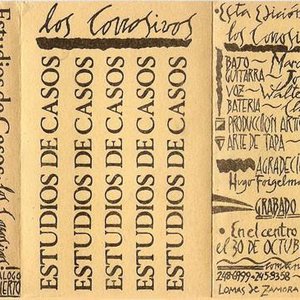 Estudios de Casos - los Corrosivos
los Corrosivos
ESTUDIOS DE CASOS
ESTUDIOS DE CASOS
ESTUDIOS DE CASOS
ESTUDIOS DE CASOS
ESTUDIOS DE CASOS
• Esta Edición
los Corrosivos
BAJO ~ Marc
GUITARRA
VOZ ~ Walte
BATERIA ~
PRODUCCION ARTÍS
ARTE DE TAPA
AGRADECI
Hugo Foigelma
GRABADO
• En el centro
el 30 DE OCTUB
248-6999 • 245-9358
LOMAS DE ZAMORA